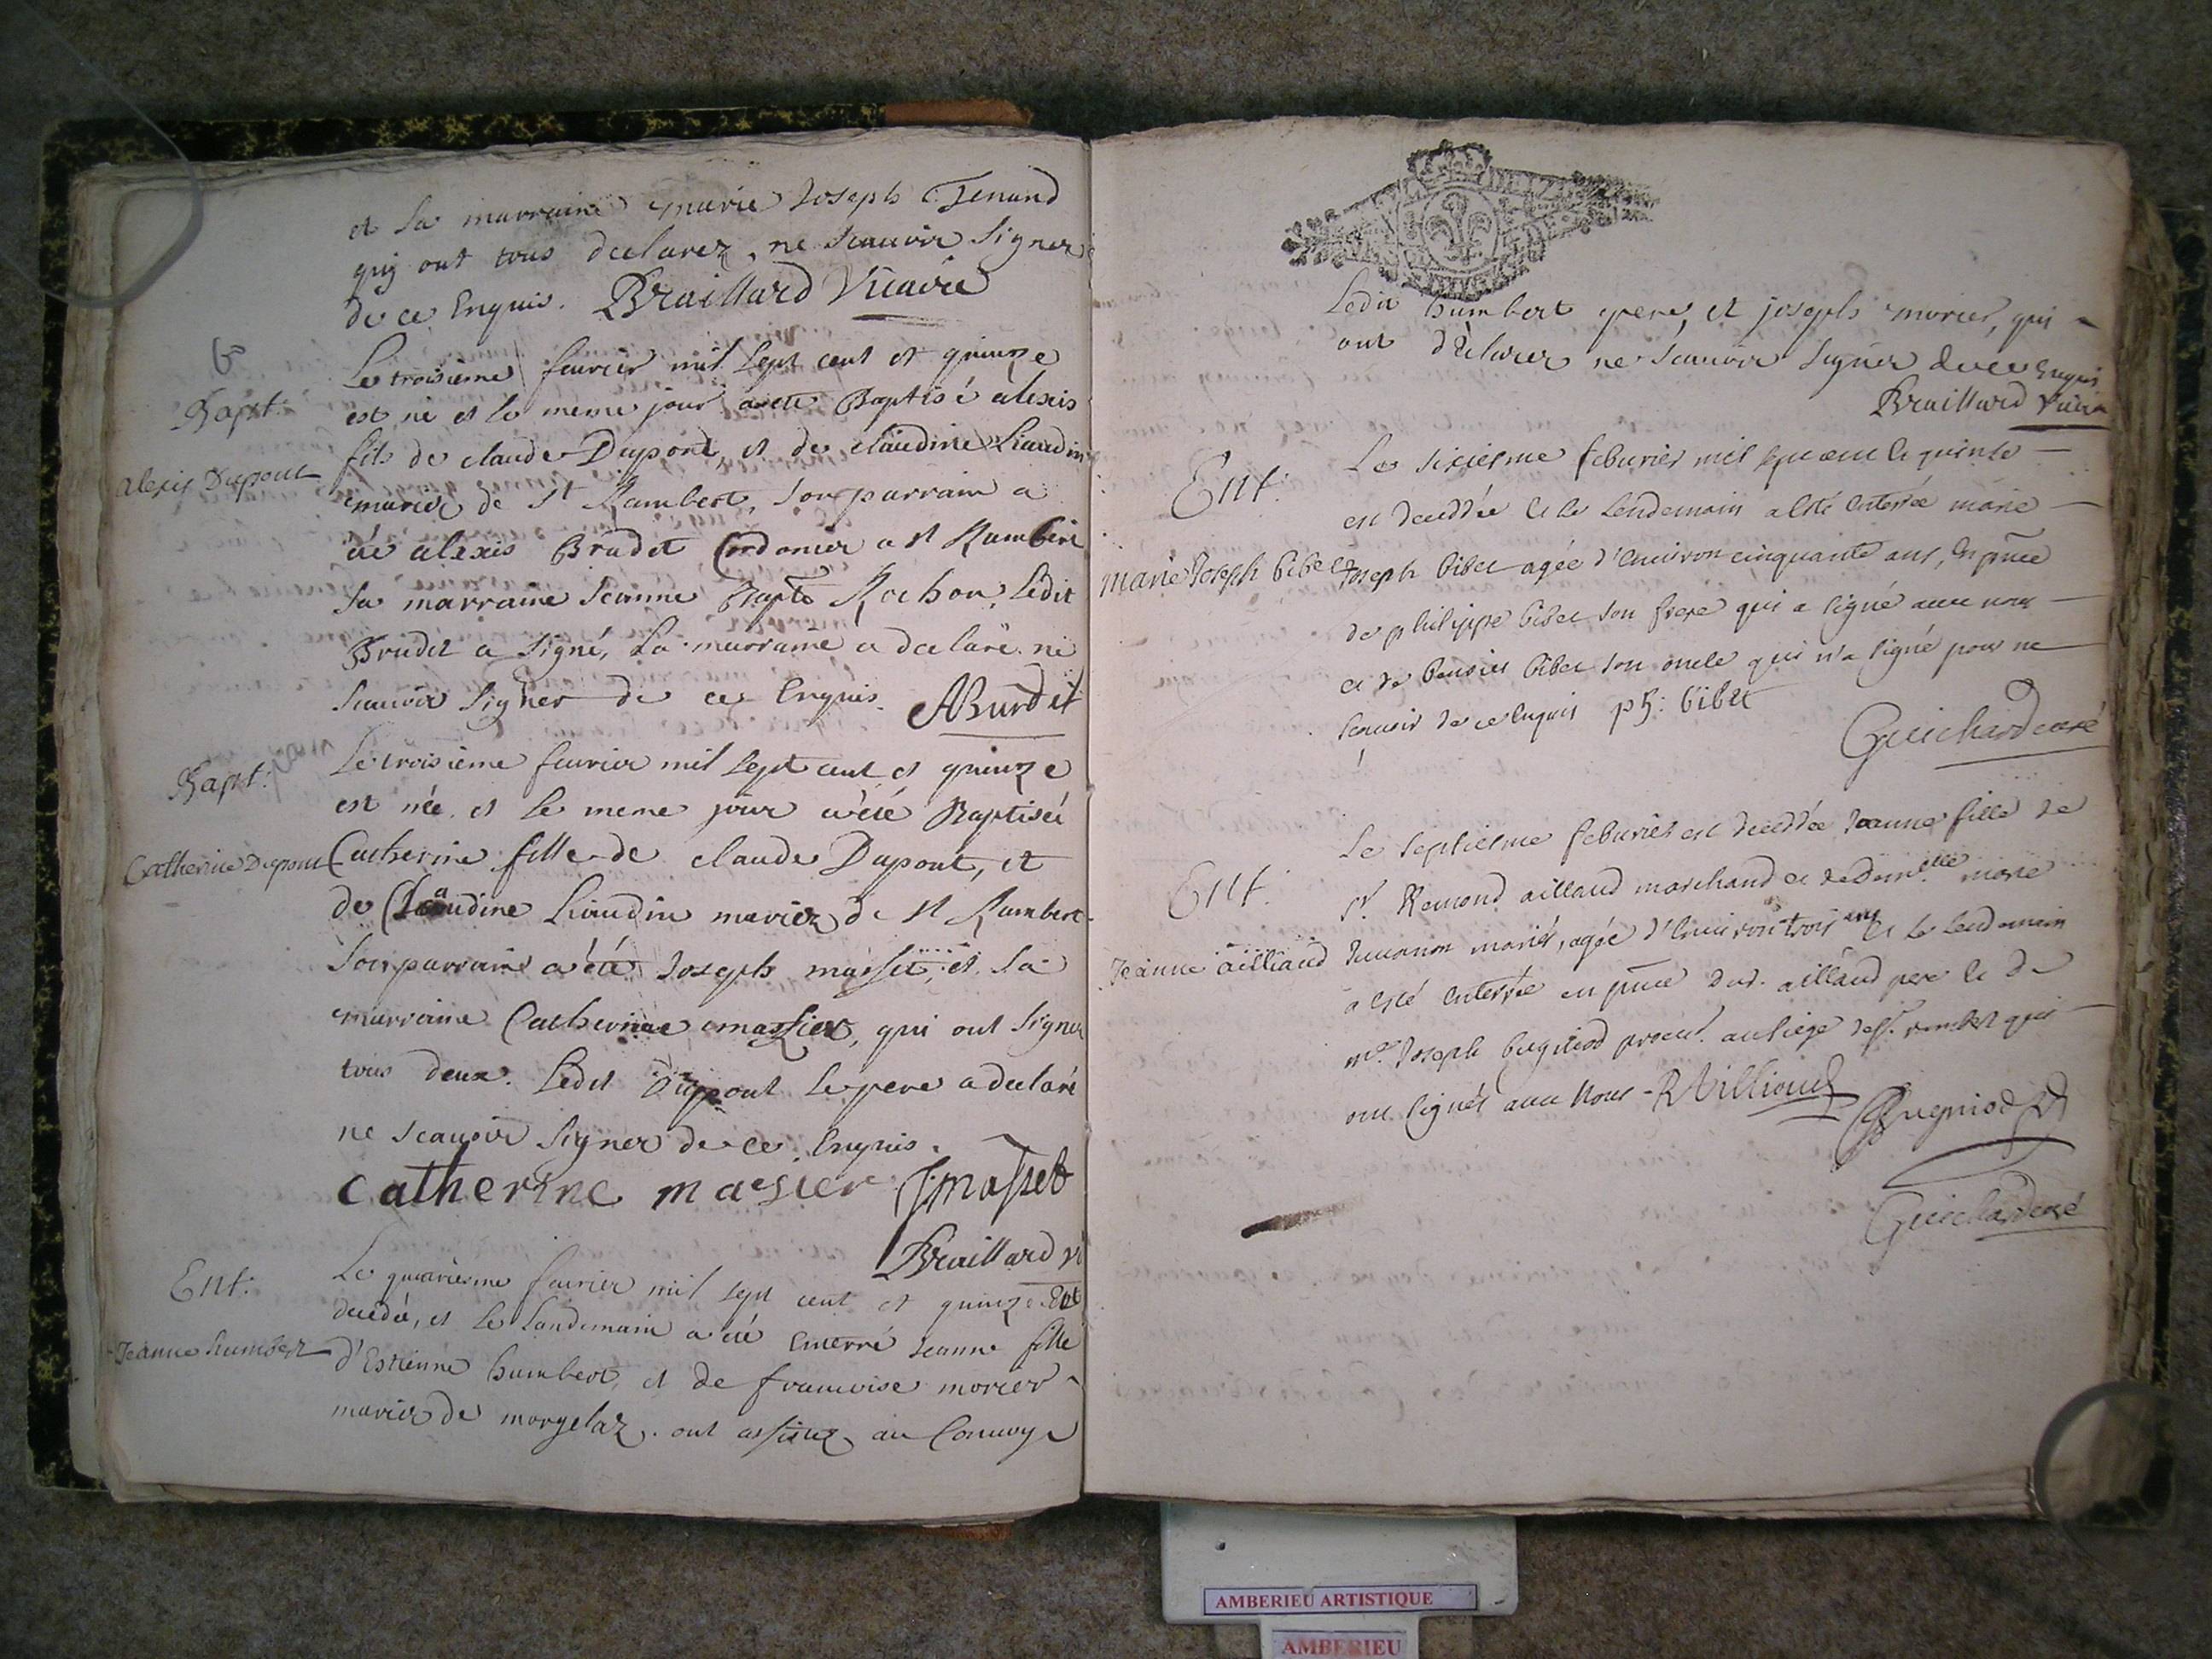 et sa marraine marie Joseph Tenand
qui ont tous declarez ne scauoir signer
de ce enquis. Braillard Vicaire
6
Bapt:
alexis Dupont
Le troisieme feurier mil sept cent et quinze
est né et le meme jour a eté Baptisé alexis
fils de claude Dupont, et de claudine Liaudin
mariez de St Rambert, son parrain a
été alexis Brudet Cordonier a St Rambert
sa marraine Jeanne Bapte Rochon, Ledit
Brudet a signé, La marraine a declaré ne
scauoir signer de ce enquis. ABurdet
Bapt:
Catherine Dupont
Le troisieme feurier mil sept cent et quinze
est née et le meme jour a été Baptiséé
Catherine fille de claude Dupont, et
de Claudine Liaudin mariez de St Rambert
son parrain a été Joseph masset, et sa
marraine Catherine massier, qui ont signez
tous deux. Ledit Dupont le pere a declaré
ne scauoir signer de ce enquis.
catherine masier J masset
Braillard vi
Ent:
Jeanne humbert
Le quatriesme feurier mil sept cent et quinze Est
decedée, et le landemain a été enterré Jeanne fille
d'Estienne humbert, et de francoise morier
mariez de morgelaz. ont assistez au Conuoy
Ledit humbert pere, et joseph morier, qui
ont déclarez ne scauoir signer de ce enquis
Braillard Vicaire
Ent:
marie Joseph bibet
Le sixiesme feburier mil sept cent et quinse
est deceddée et le lendemain a esté enterrée marie
Joseph bibet agée d'enuiron cinquante ans, en pnce
de philippe bibet son frere qui a signé auec nous
et de bibet son oncle qui n'a signé pour ne
scauoir de ce enquis ph: bibet
Guichard curé
Ent:
Jeanne ailliaud
Le septiesme feburier est deceddée Jeanne fille de
sr. Remond aillaud marchand et de damlle marie
mariés, agée d'enuiron trois ans et le lendemain
a esté enterrée en pnce dud. aillaud pere et de
me. Joseph bugniod procur. au siege de st. rambert qui
ont signés auec nous - RAilliaud
Bugniod
Guichard curé
AMBERIEU ARTISTIQUE
AMBERIEU